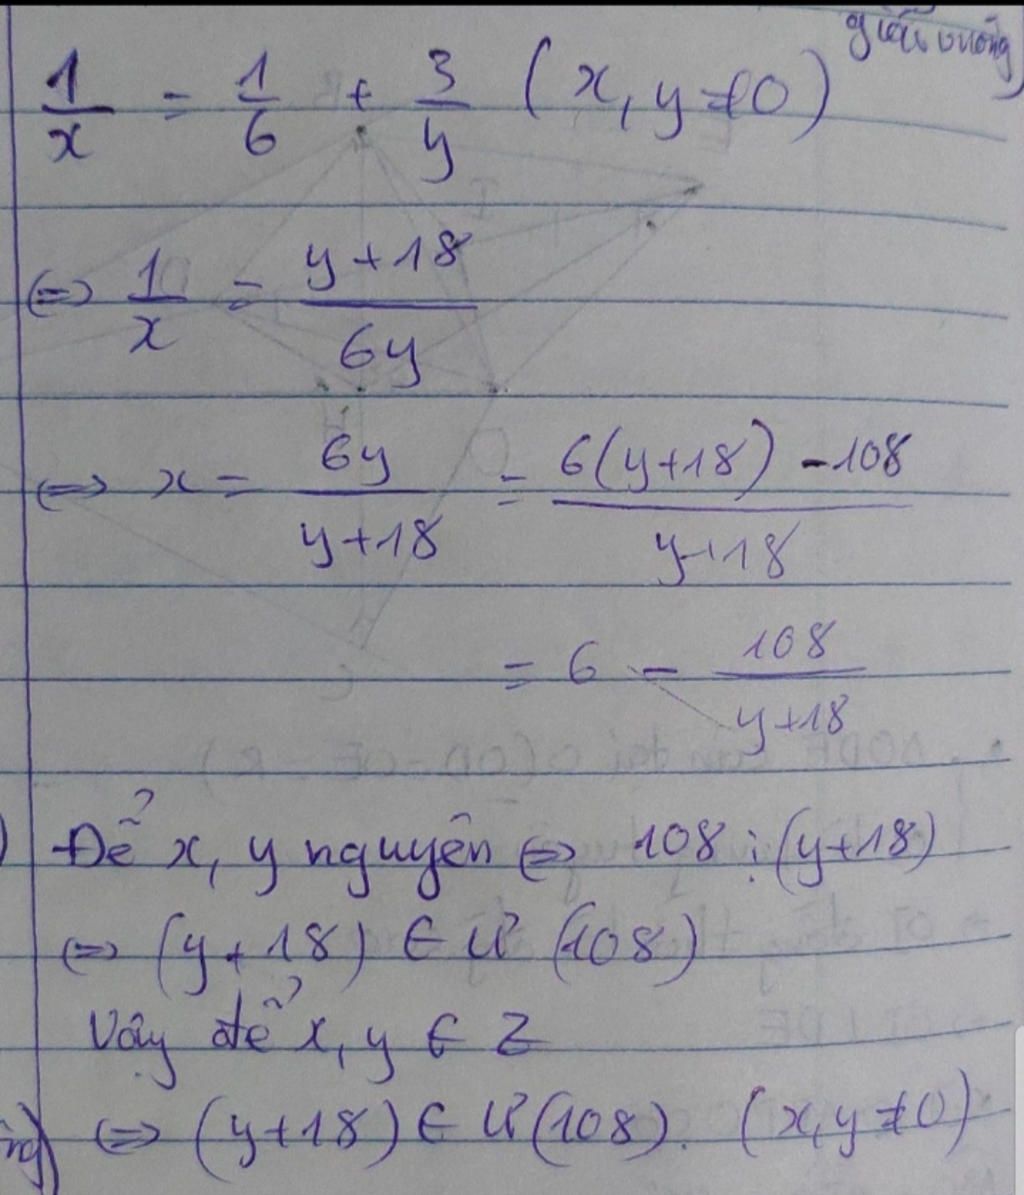 giác vuông)
1/x = 1/6 + 3/y (x, y ≠ 0)
⇔ 1/x = (y+18)/(6y)
⇔ x = 6y/(y+18) = (6(y+18) - 108)/(y+18)
= 6 - 108/(y+18)
) Để x, y nguyên ⇔ 108 ⋮ (y+18)
⇔ (y+18) ∈ Ư(108)
Vậy để x, y ∈ Z
⇔ (y+18) ∈ Ư(108). (x, y ≠ 0)